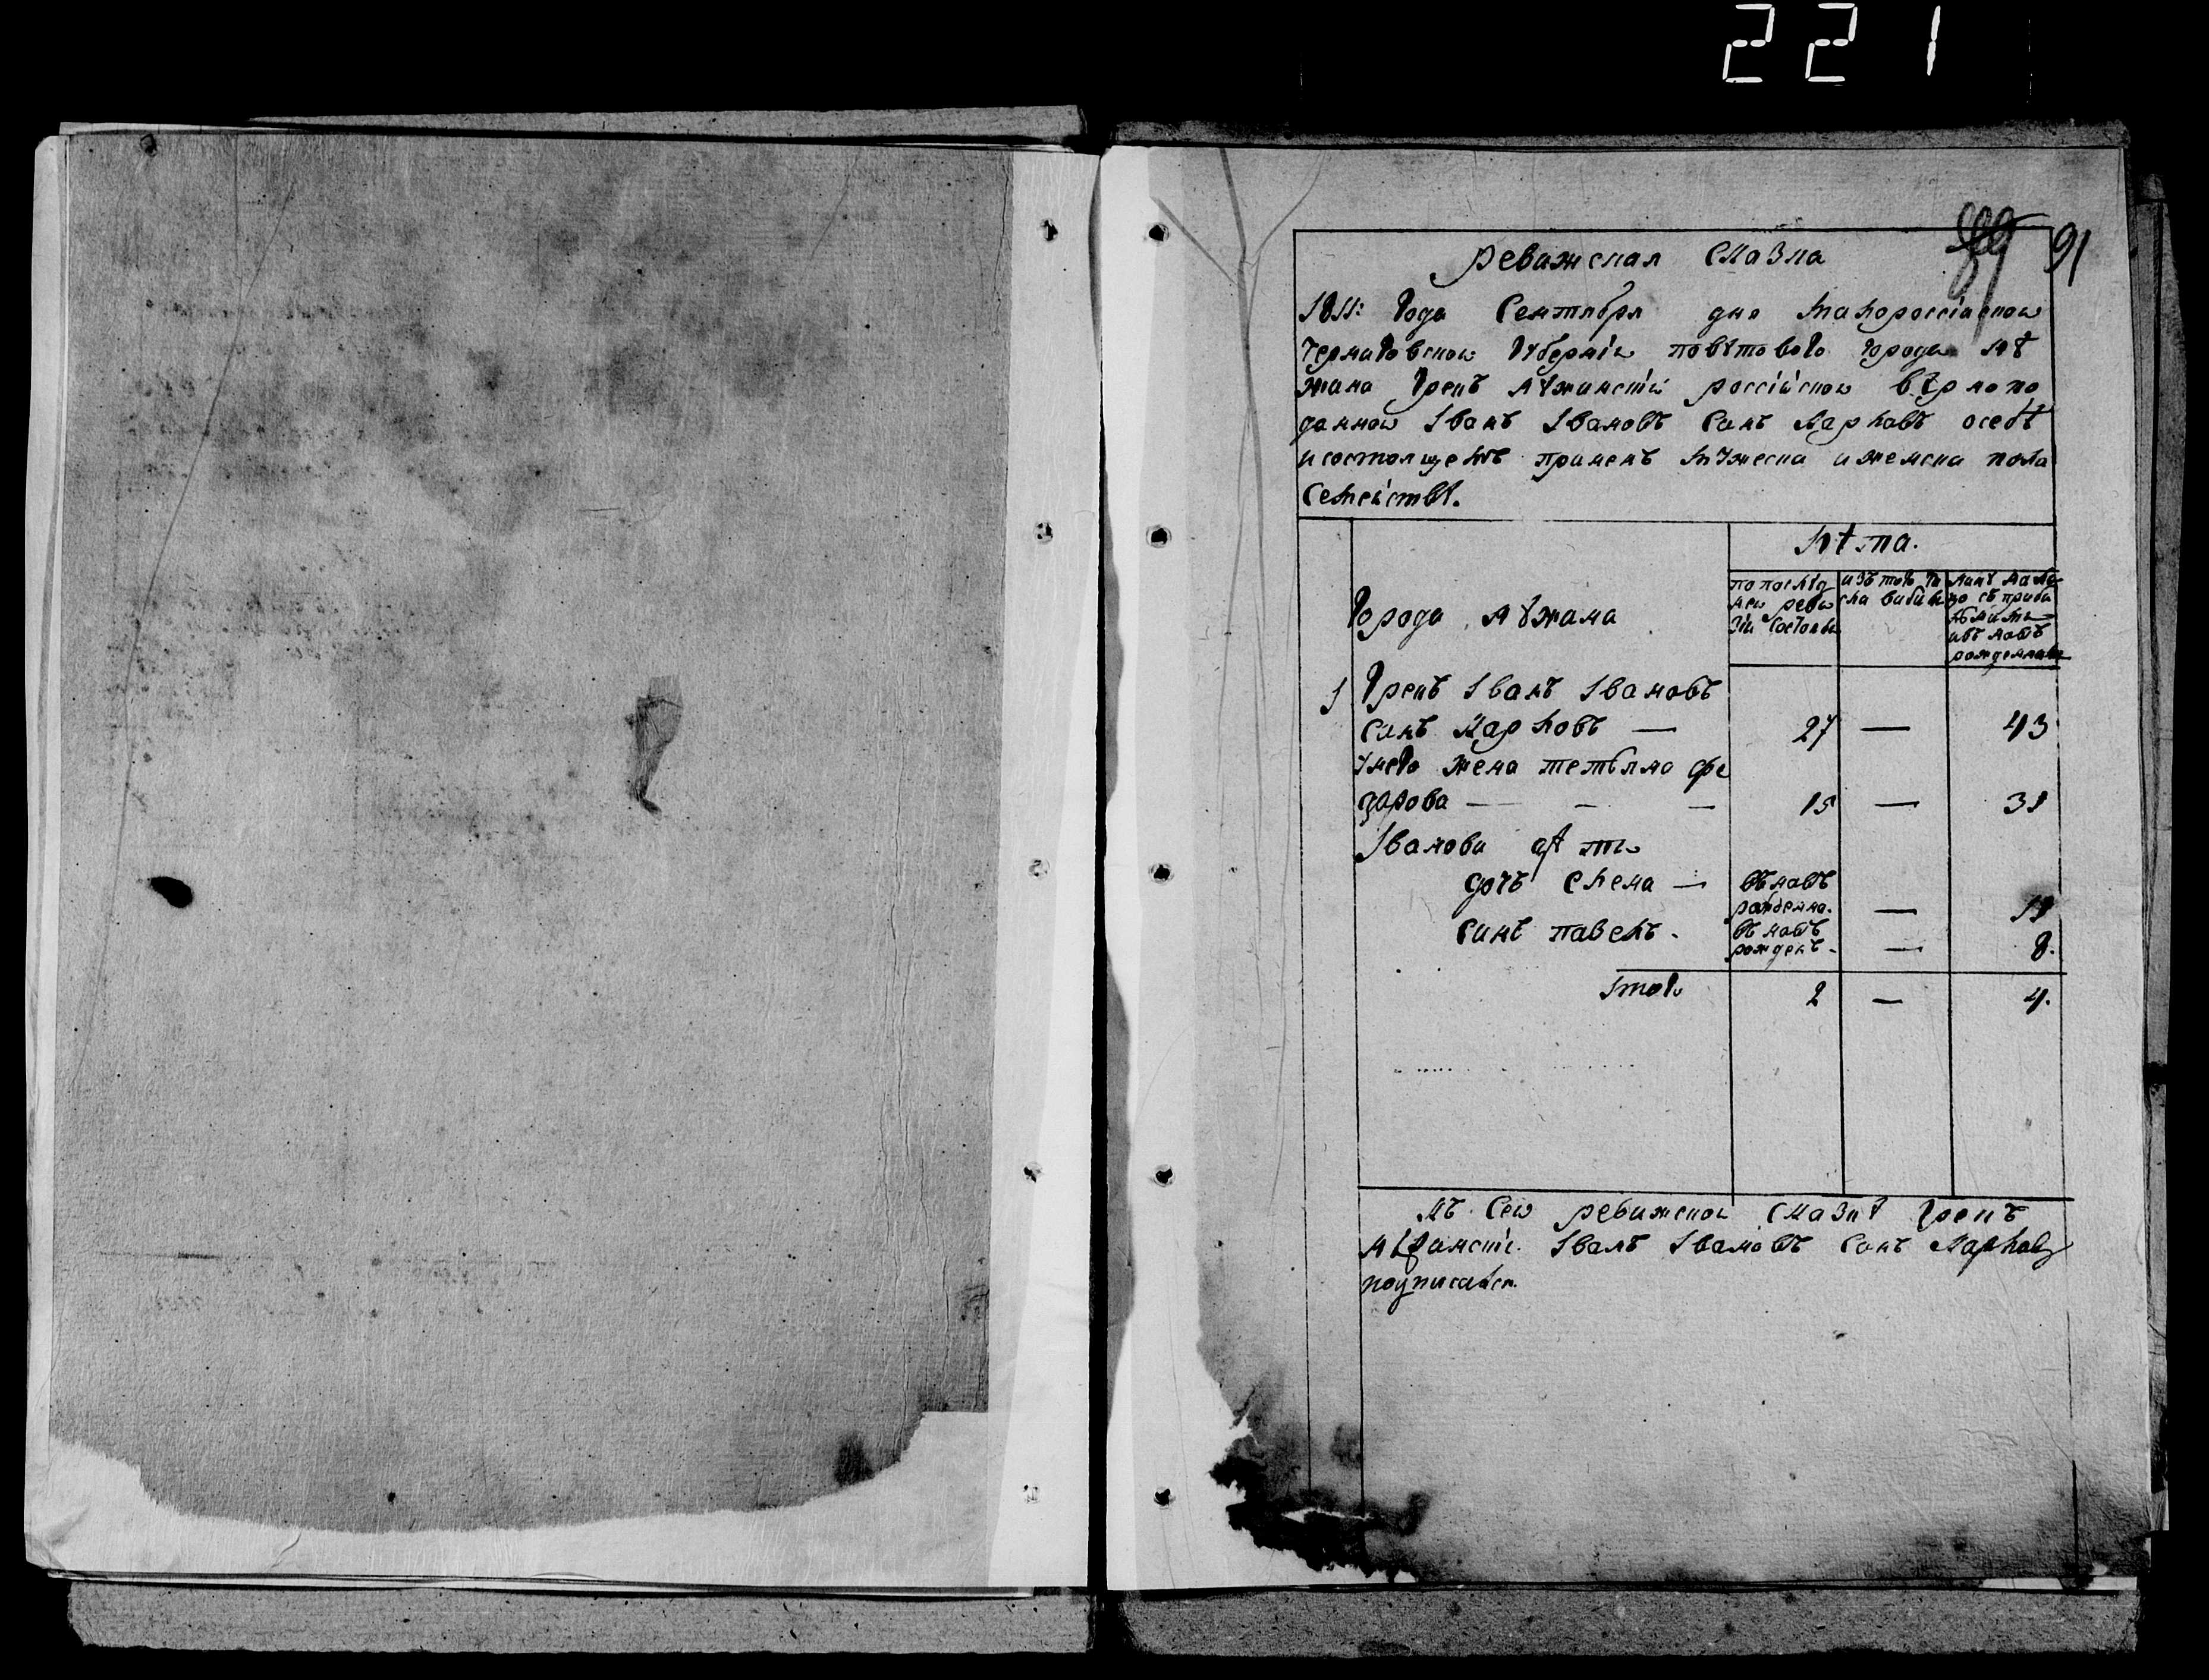 221
91
ревижская сказка
1811: года Сентября дня малороссійской
черниговской губерніи повѣтового города нѣ
жина грекъ нѣжинскій россійской вѣрнопо
данной Іванъ Івановъ синъ Карповъ осебѣ
исостоящемъ принемъ мужеска иженска пола
семействѣ.
лѣта.
города нѣжина
попослѣд
ней реви
зіи состояли
изъ того чи
сла вибили
нинѣ налицо
съ прибилими
ивъ новъ
рожденними
1 грекъ Іванъ Івановъ
синъ Карповъ — 27 — 43
унего жена тетьяна фе
дорова — — — 15 — 31
Іванови дѣти
дочь елена — въновъ
рожденна. — 11
синъ павелъ. въновъ
рожденъ — — 8.
Ітого 2 — 4.
къ сей ревижской сказкѣ грекъ
нѣжинскі Іванъ Івановъ синъ Карповъ
подписался.